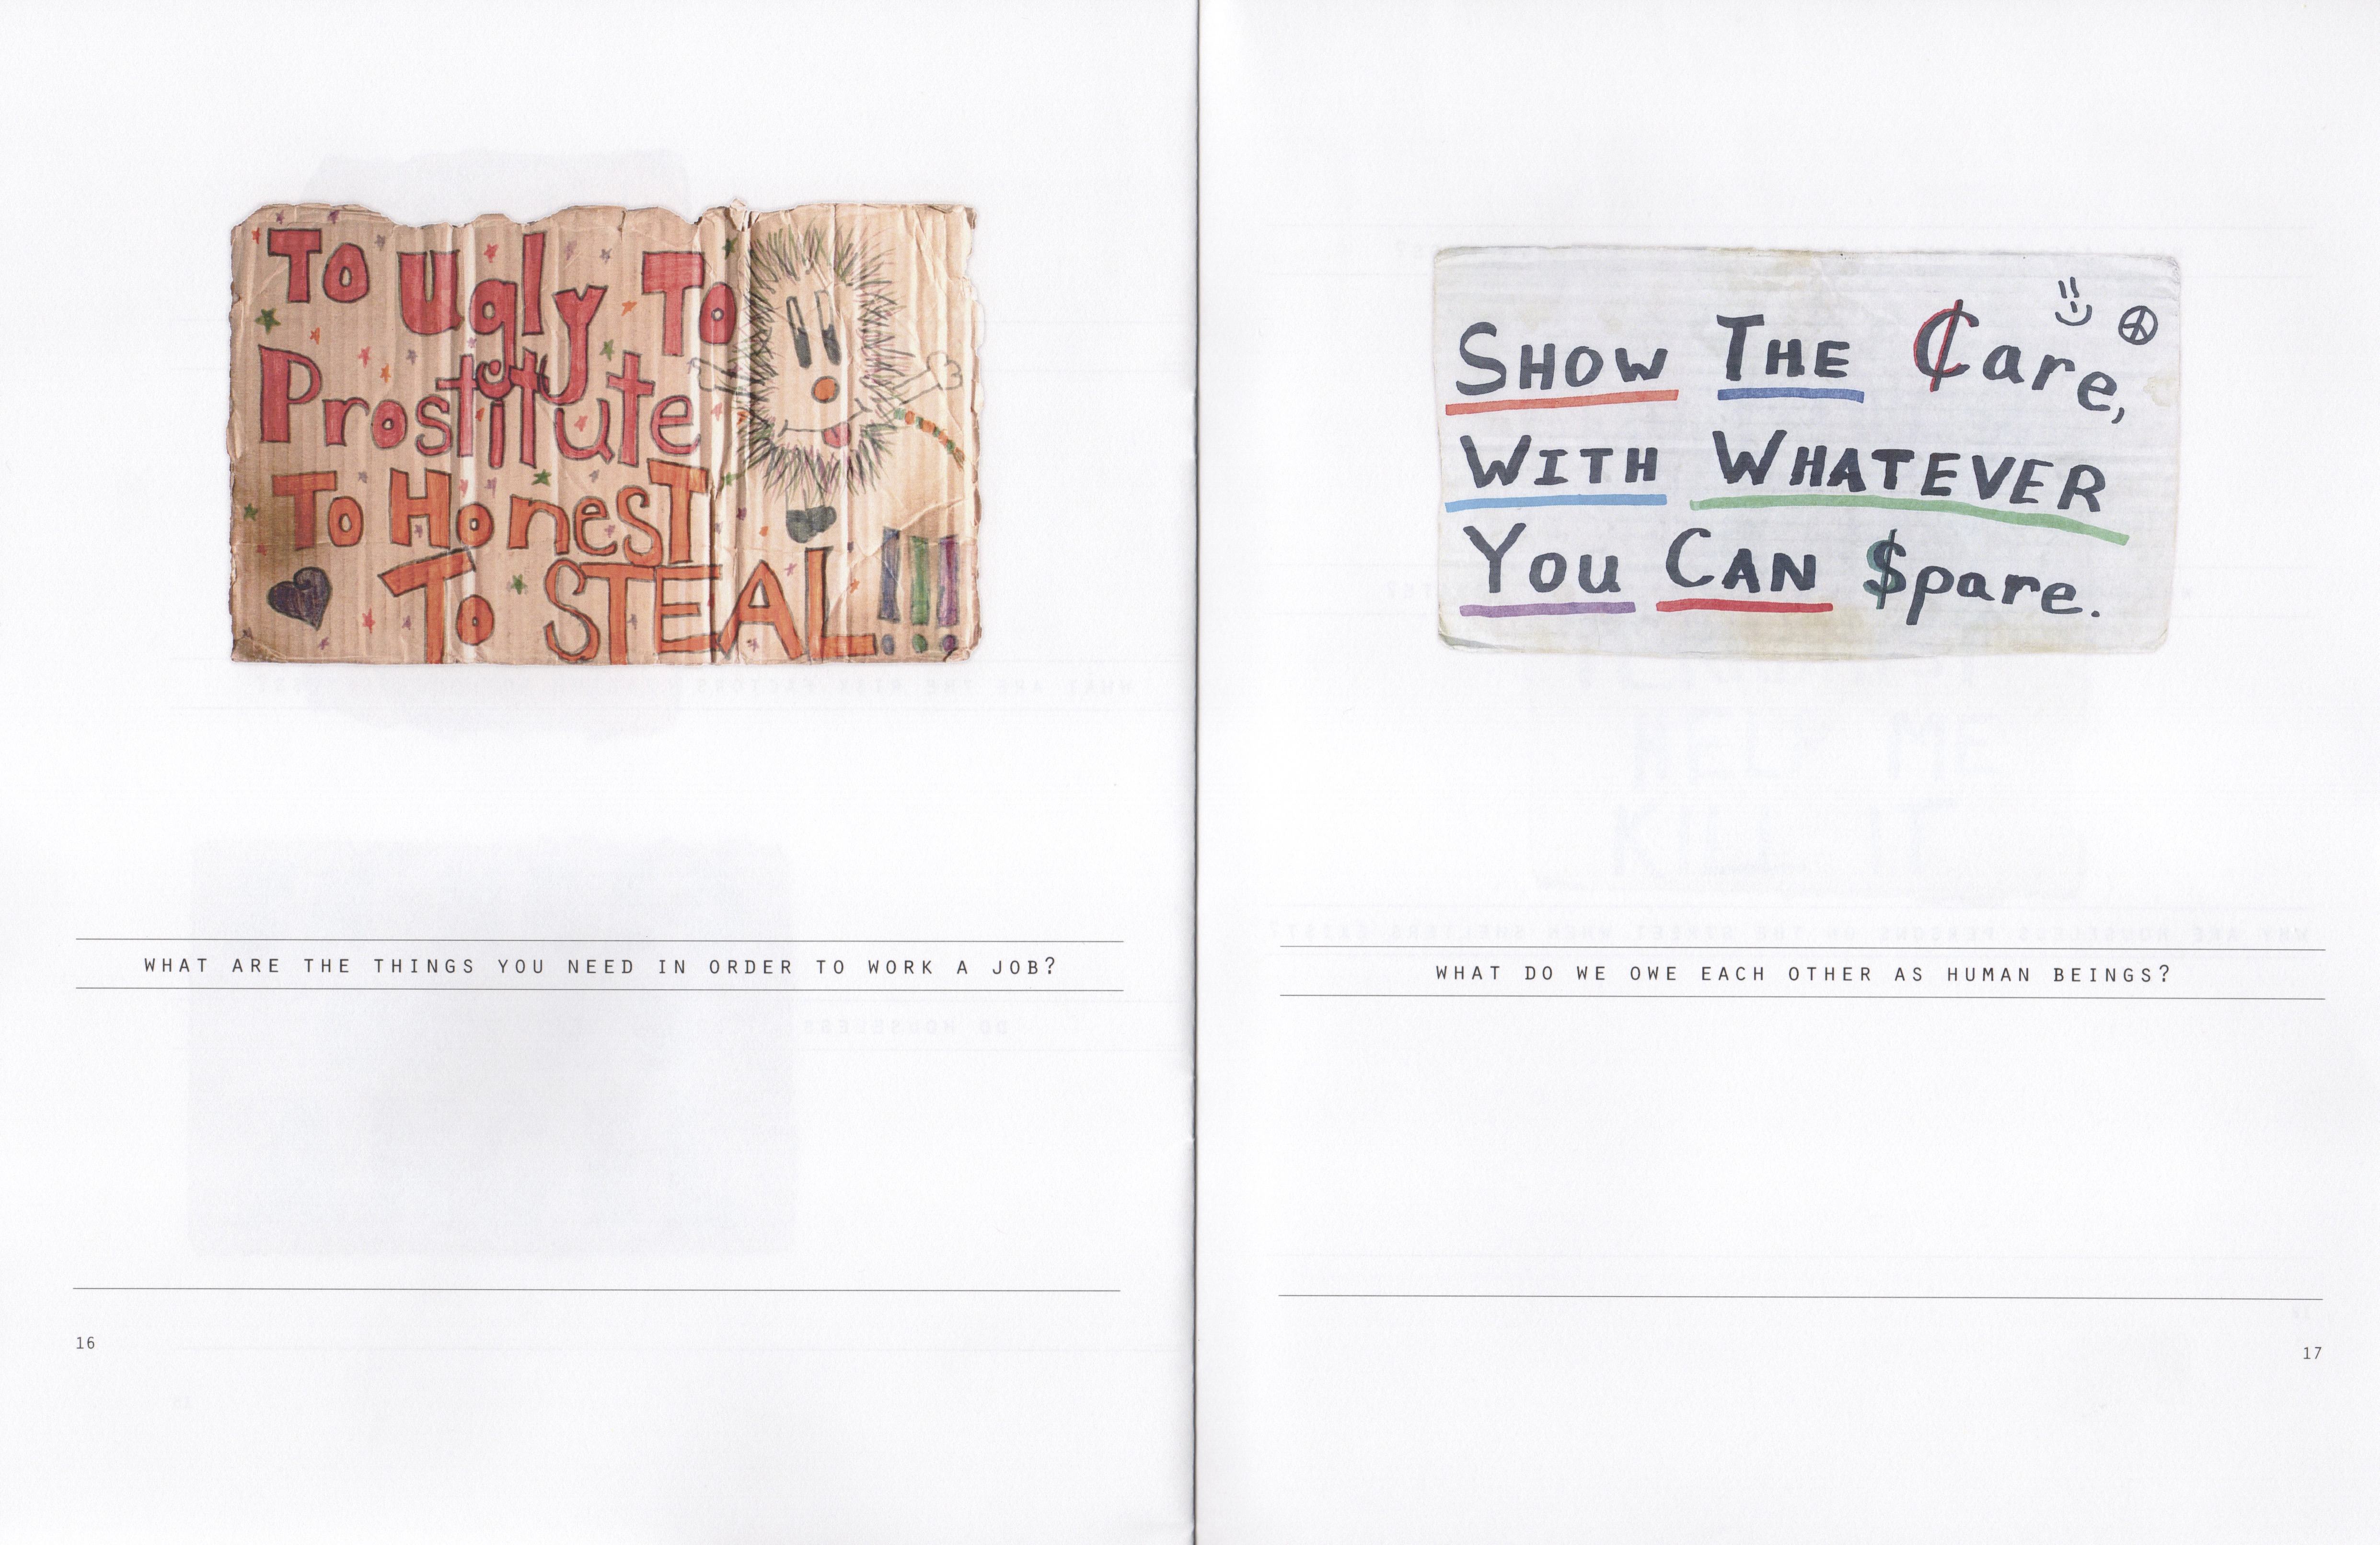 To Ugly To
Prostitute
To HonesT
To STEAL!!!
WHAT ARE THE THINGS YOU NEED IN ORDER TO WORK A JOB?
16
SHOW THE ₵are,
WITH WHATEVER
YOU CAN $pare.
WHAT DO WE OWE EACH OTHER AS HUMAN BEINGS?
17